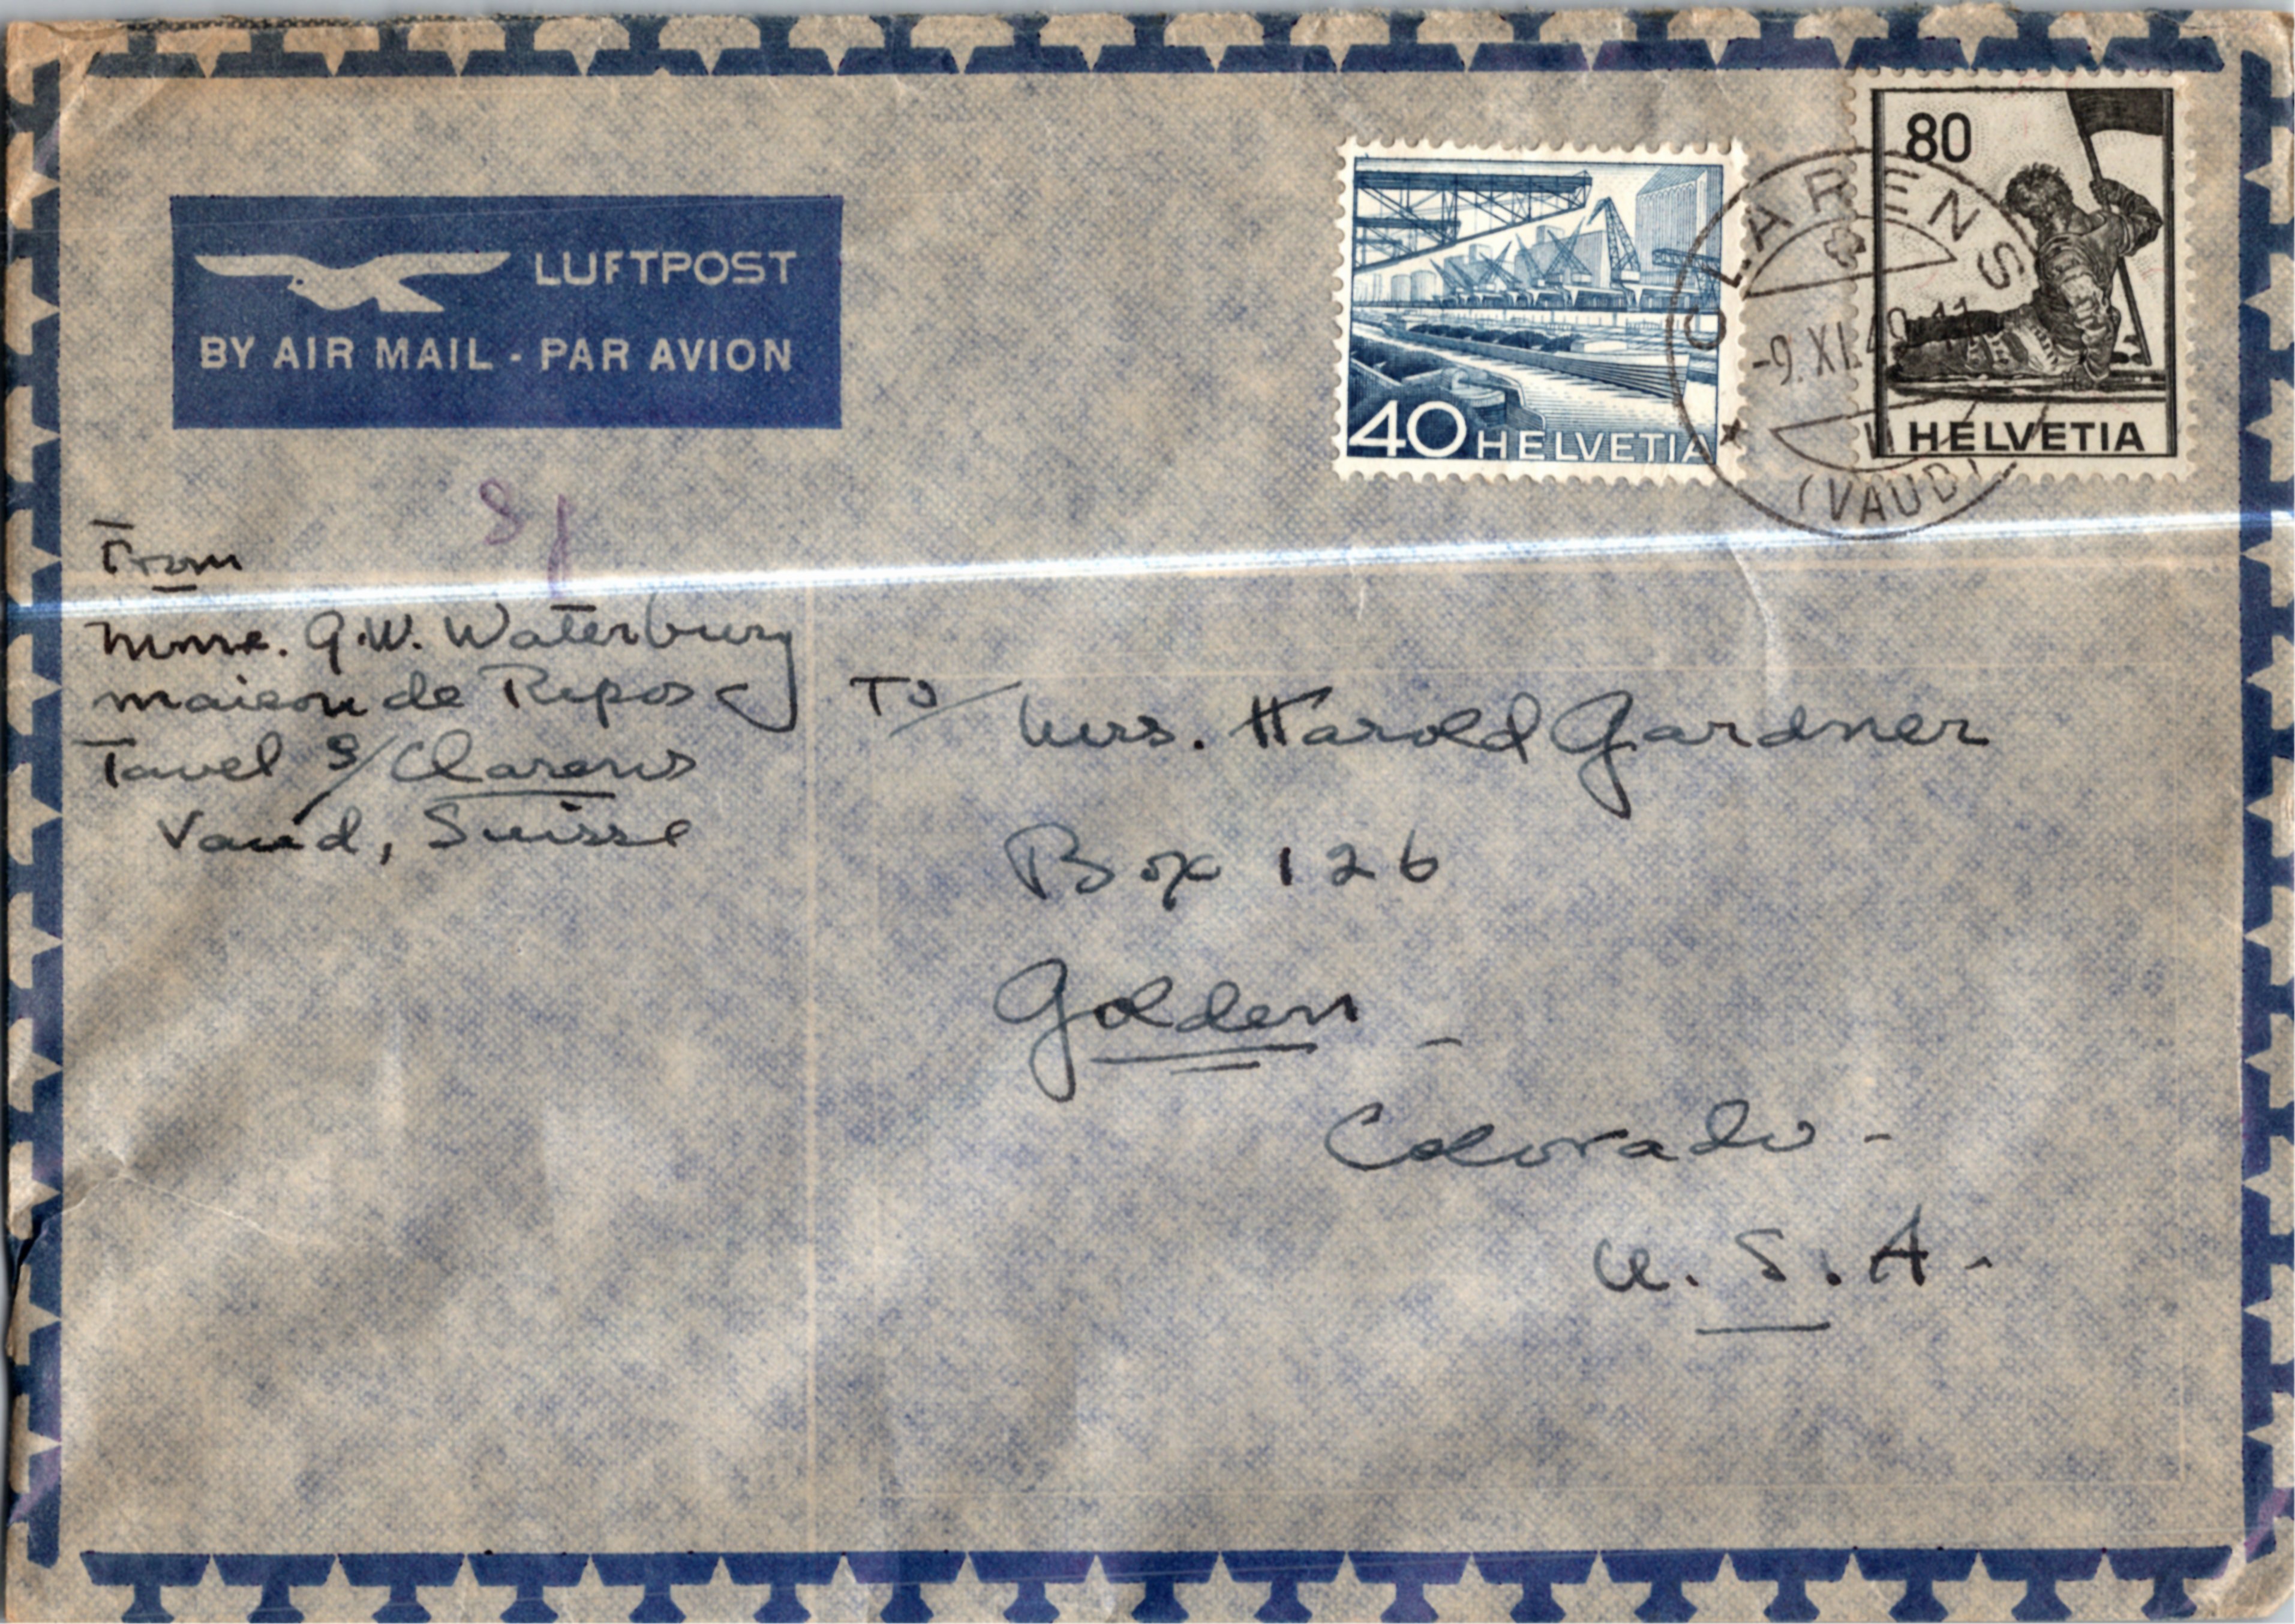 LUFTPOST
BY AIR MAIL - PAR AVION
40 HELVETIA
80
HELVETIA
CLARENS
-9. XI. 49-11
(VAUD)
From
Mme. G.W. Waterbury
Maison de Repos
Tavel s/Clarens
Vaud, Suisse
To/ Mrs. Harold Gardner
Box 126
Golden -
Colorado -
U. S. A -